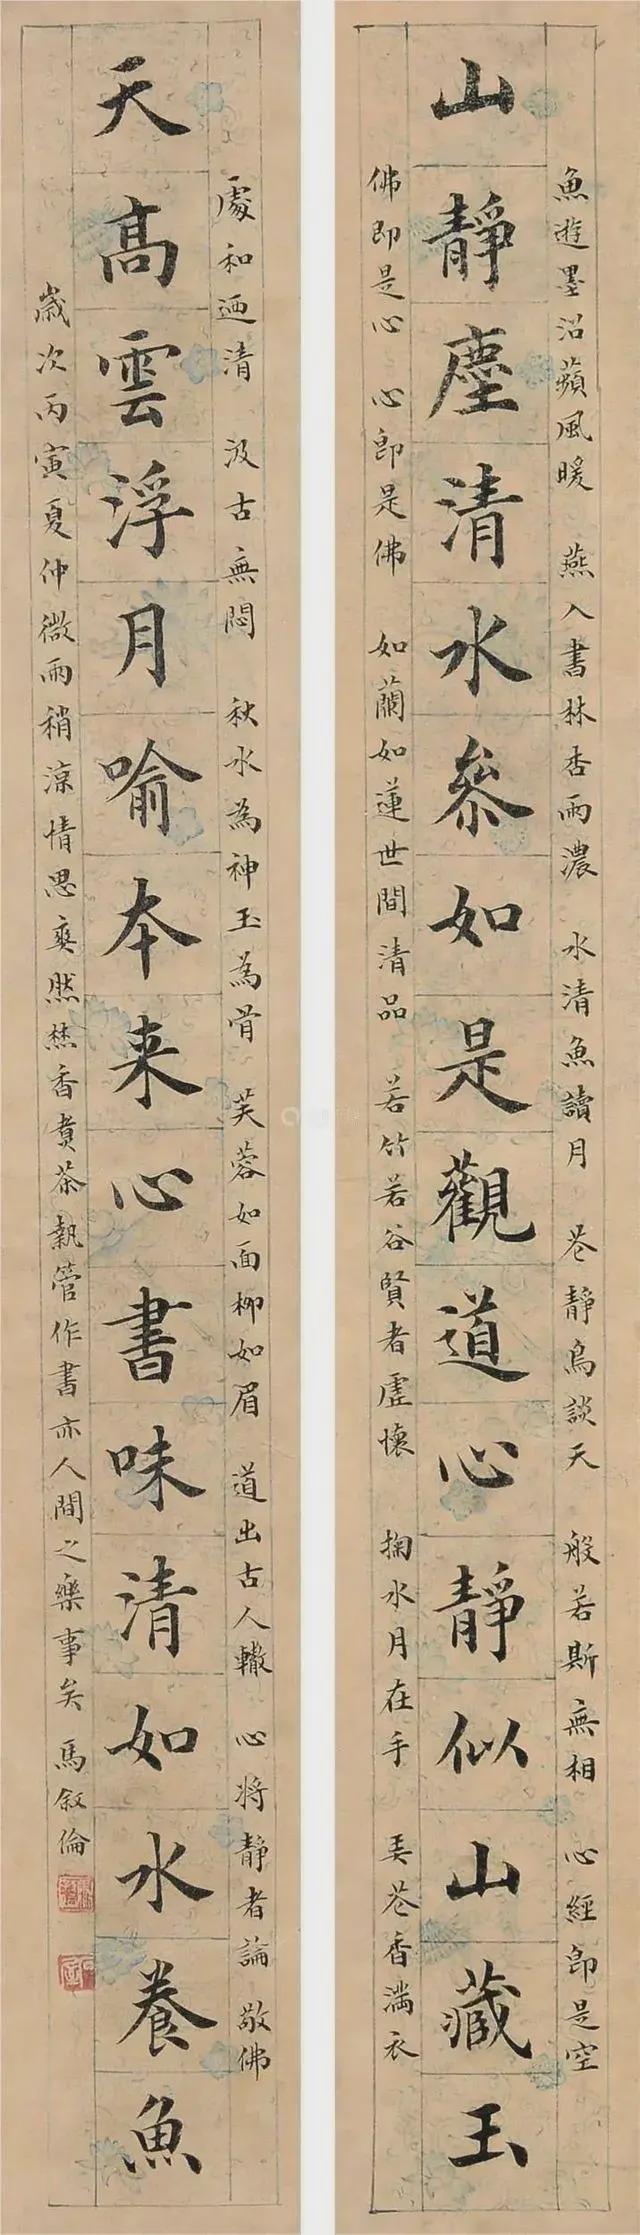 魚遊墨沼蘋風暖 燕入書林杏雨濃 水清魚讀月 花靜鳥談天 般若斯無相 心經即是空
山靜塵清水叅如是觀道心靜似山藏玉
佛即是心 心即是佛 如蘭如蓮世間清品 若竹若谷賢者虛懷 掬水月在手 弄花香滿衣
處和迺清 汲古無悶 秋水為神玉為骨 芙蓉如面柳如眉 道出古人轍 心將靜者論 敬佛
天高雲浮月喻本来心書味清如水養魚
歲次丙寅夏仲微雨稍涼情思爽然焚香煮茶執管作書亦人間之樂事矣 馬叙倫